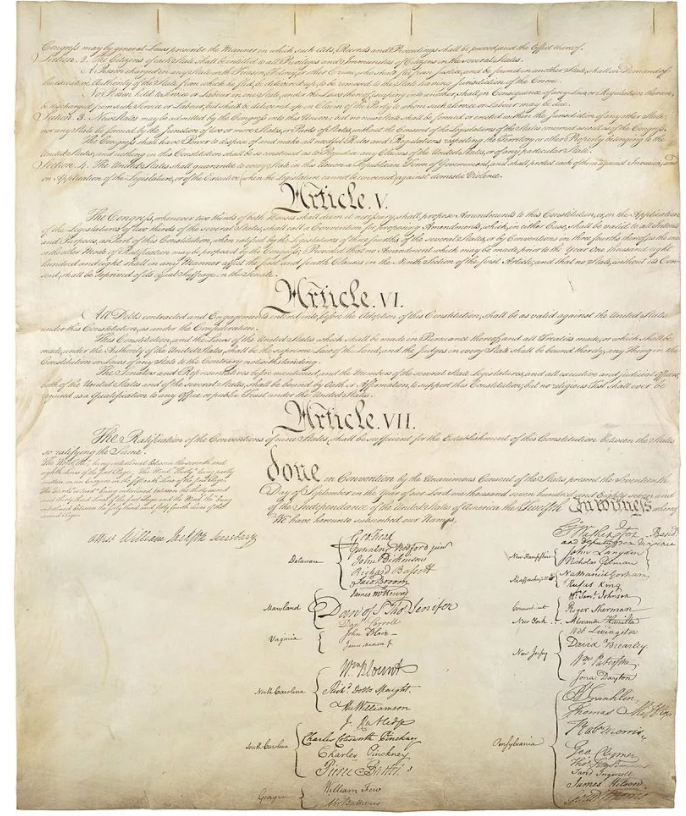 Congress may by general Laws prescribe the Manner in which such Acts, Records and Proceedings shall be proved, and the Effect thereof.
Section. 2. The Citizens of each State shall be entitled to all Privileges and Immunities of Citizens in the several States.
A Person charged in any State with Treason, Felony, or other Crime, who shall flee from Justice, and be found in another State, shall on Demand of
the executive Authority of the State from which he fled, be delivered up, to be removed to the State having Jurisdiction of the Crime.
No Person held to Service or Labour in one State, under the Laws thereof, escaping into another, shall, in Consequence of any Law or Regulation therein,
be discharged from such Service or Labour, but shall be delivered up on Claim of the Party to whom such Service or Labour may be due.
Section. 3. New States may be admitted by the Congress into this Union; but no new State shall be formed or erected within the Jurisdiction of any other State;
nor any State be formed by the Junction of two or more States, or Parts of States, without the Consent of the Legislatures of the States concerned as well as of the Congress.
The Congress shall have Power to dispose of and make all needful Rules and Regulations respecting the Territory or other Property belonging to the
United States; and nothing in this Constitution shall be so construed as to Prejudice any Claims of the United States, or of any particular State.
Section. 4. The United States shall guarantee to every State in this Union a Republican Form of Government, and shall protect each of them against Invasion; and
on Application of the Legislature, or of the Executive (when the Legislature cannot be convened) against domestic Violence.
Article. V.
The Congress, whenever two thirds of both Houses shall deem it necessary, shall propose Amendments to this Constitution, or, on the Application
of the Legislatures of two thirds of the several States, shall call a Convention for proposing Amendments, which, in either Case, shall be valid to all Intents
and Purposes, as Part of this Constitution, when ratified by the Legislatures of three fourths of the several States, or by Conventions in three fourths thereof, as the one
or the other Mode of Ratification may be proposed by the Congress; Provided that no Amendment which may be made prior to the Year One thousand eight
hundred and eight shall in any Manner affect the first and fourth Clauses in the Ninth Section of the first Article; and that no State, without its Con
sent, shall be deprived of its equal Suffrage in the Senate.
Article. VI.
All Debts contracted and Engagements entered into, before the Adoption of this Constitution, shall be as valid against the United States
under this Constitution, as under the Confederation.
This Constitution, and the Laws of the United States which shall be made in Pursuance thereof; and all Treaties made, or which shall be
made, under the Authority of the United States, shall be the supreme Law of the Land; and the Judges in every State shall be bound thereby, any Thing in the
Constitution or Laws of any State to the Contrary notwithstanding.
The Senators and Representatives before mentioned, and the Members of the several State Legislatures, and all executive and judicial Officers,
both of the United States and of the several States, shall be bound by Oath or Affirmation, to support this Constitution; but no religious Test shall ever be
required as a Qualification to any Office or public Trust under the United States.
Article. VII.
The Ratification of the Conventions of nine States, shall be sufficient for the Establishment of this Constitution between the States
so ratifying the Same.
The Word, the, being interlined between the seventh and
eighth Lines of the first Page, The Word Thirty being partly
written on an Erazure in the fifteenth Line of the first Page,
The Words is tried being interlined between the thirty second
and thirty third Lines of the first Page and the Word the being
interlined between the forty third and forty fourth Lines of the
second Page.
Attest William Jackson Secretary
done in Convention by the Unanimous Consent of the States present the Seventeenth
Day of September in the Year of our Lord one thousand seven hundred and Eighty seven and
of the Independance of the United States of America the Twelfth In witness whereof
We have hereunto subscribed our Names,
Delaware
Geo: Read
Gunning Bedford jun
John Dickinson
Richard Bassett
Jaco: Broom
Maryland
James McHenry
Dan of St Thos Jenifer
Danl Carroll
Virginia
John Blair
James Madison Jr
North Carolina
Wm Blount
Richd Dobbs Spaight
Hu Williamson
South Carolina
J. Rutledge
Charles Cotesworth Pinckney
Charles Pinckney
Pierce Butler
Georgia
William Few
Abr Baldwin
Go Washington Presidt
and deputy from Virginia
New Hampshire
John Langdon
Nicholas Gilman
Massachusetts
Nathaniel Gorham
Rufus King
Connecticut
Wm Saml Johnson
Roger Sherman
New York
Alexander Hamilton
New Jersey
Wil: Livingston
David Brearley
Wm Paterson
Jona: Dayton
Pensylvania
B Franklin
Thomas Mifflin
Robt Morris
Geo. Clymer
Thos FitzSimons
Jared Ingersoll
James Wilson
Gouv Morris